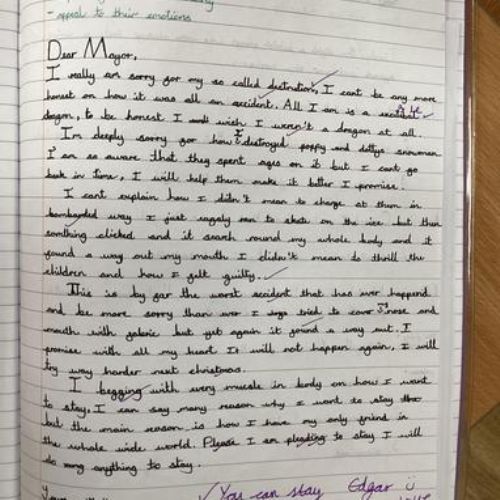 - appeal to their emotions
Dear Mayor,
I really am sorry gor my so called destruation, I cant be any more
honest on how it was all an accident. All I am is a
dragon, to be honest I wish I weren't a dragon at all.
Im deeply sorry gor how I destroyed poppy and dottys snowman
I am so aware that they spent ages on it but I cant go
back in time, I will help them make it better I promise.
I cant explain how I didn't mean to charge at them in
bombarded way I just ran to skate on the ice but then
somthing clicked and it search round my whole body and it
gound a way out my mouth I didn't mean to thrill the
children and how I gelt guilty.
This is by gar the worst accident that has ever happend
and be more sorry than ever I tried to cover my nose and
mouth with gabric but yet again it gound a way out. I
promise with all my heart It will not happen again, I will
try way harder next christmas.
I begging with every muscle in body on how I want
to stay. I can say many reason why I want to stay
but the main reason is how I have my only griend in
the whole wide world. Please I am pleading to stay I will
do anything to stay.
You can stay Edgar